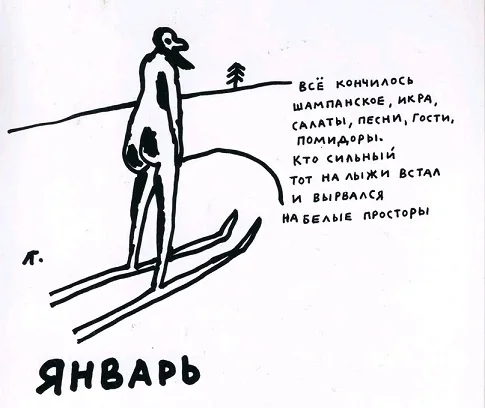 ВСЁ КОНЧИЛОСЬ
ШАМПАНСКОЕ, ИКРА,
САЛАТЫ, ПЕСНИ, ГОСТИ,
ПОМИДОРЫ.
КТО СИЛЬНЫЙ
ТОТ НА ЛЫЖИ ВСТАЛ
И ВЫРВАЛСЯ
НА БЕЛЫЕ ПРОСТОРЫ
ЯНВАРЬ